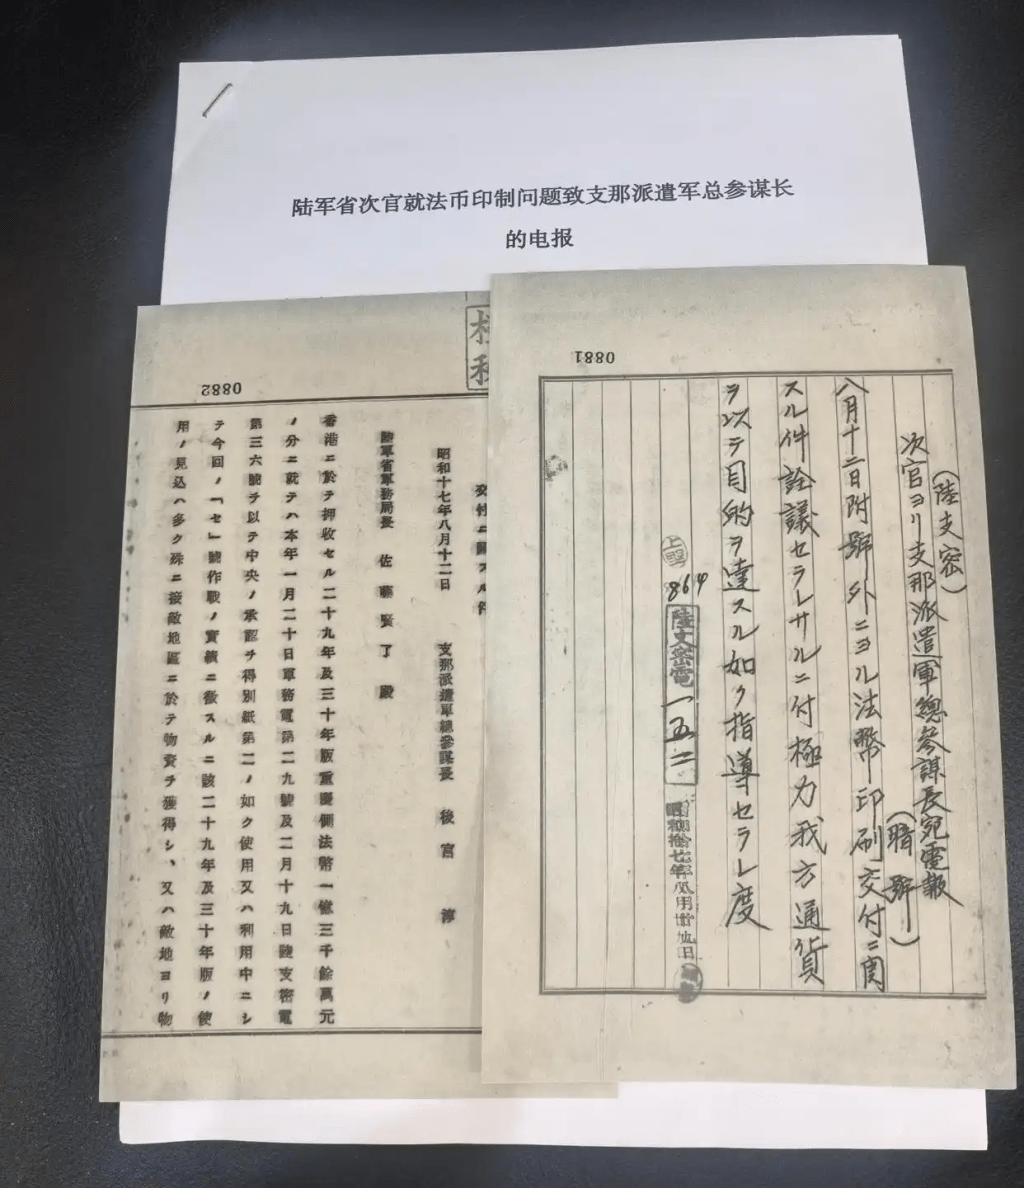 陆军省次官就法币印制问题致支那派遣军总参谋长
的电报
0881
(陸支密)
次官ヨリ支那派遣軍總参謀長宛電報
(暗號)
八月十二日附號外ニヨル法幣印刷交付ニ関
スル件詮議セラレサルニ付極力我方通貨
ヲ以テ目的ヲ達スル如ク指導セラレ度
864
陸支密電一五二
0882
昭和十七年八月十二日 支那派遣軍總參謀長 後宮 淳
陸軍省軍務局長 佐藤賢了殿
香港ニ於テ押收セル二十九年及三十年版重慶側法幣一億三千餘萬元
ノ分ニ就テハ本年一月二十日軍務電第二九號及二月十九日陸支密電
第三六號ヲ以テ中央ノ承認ヲ得別紙第二ノ如ク使用又ハ利用中ニシ
テ今回ノ「セ」號作戰ノ實績ニ徵スルニ該二十九年及三十年版ノ使
用ノ見込ハ多ク殊ニ接敵地區ニ於テ物資ヲ獲得シ、又ハ敵地ヨリ物